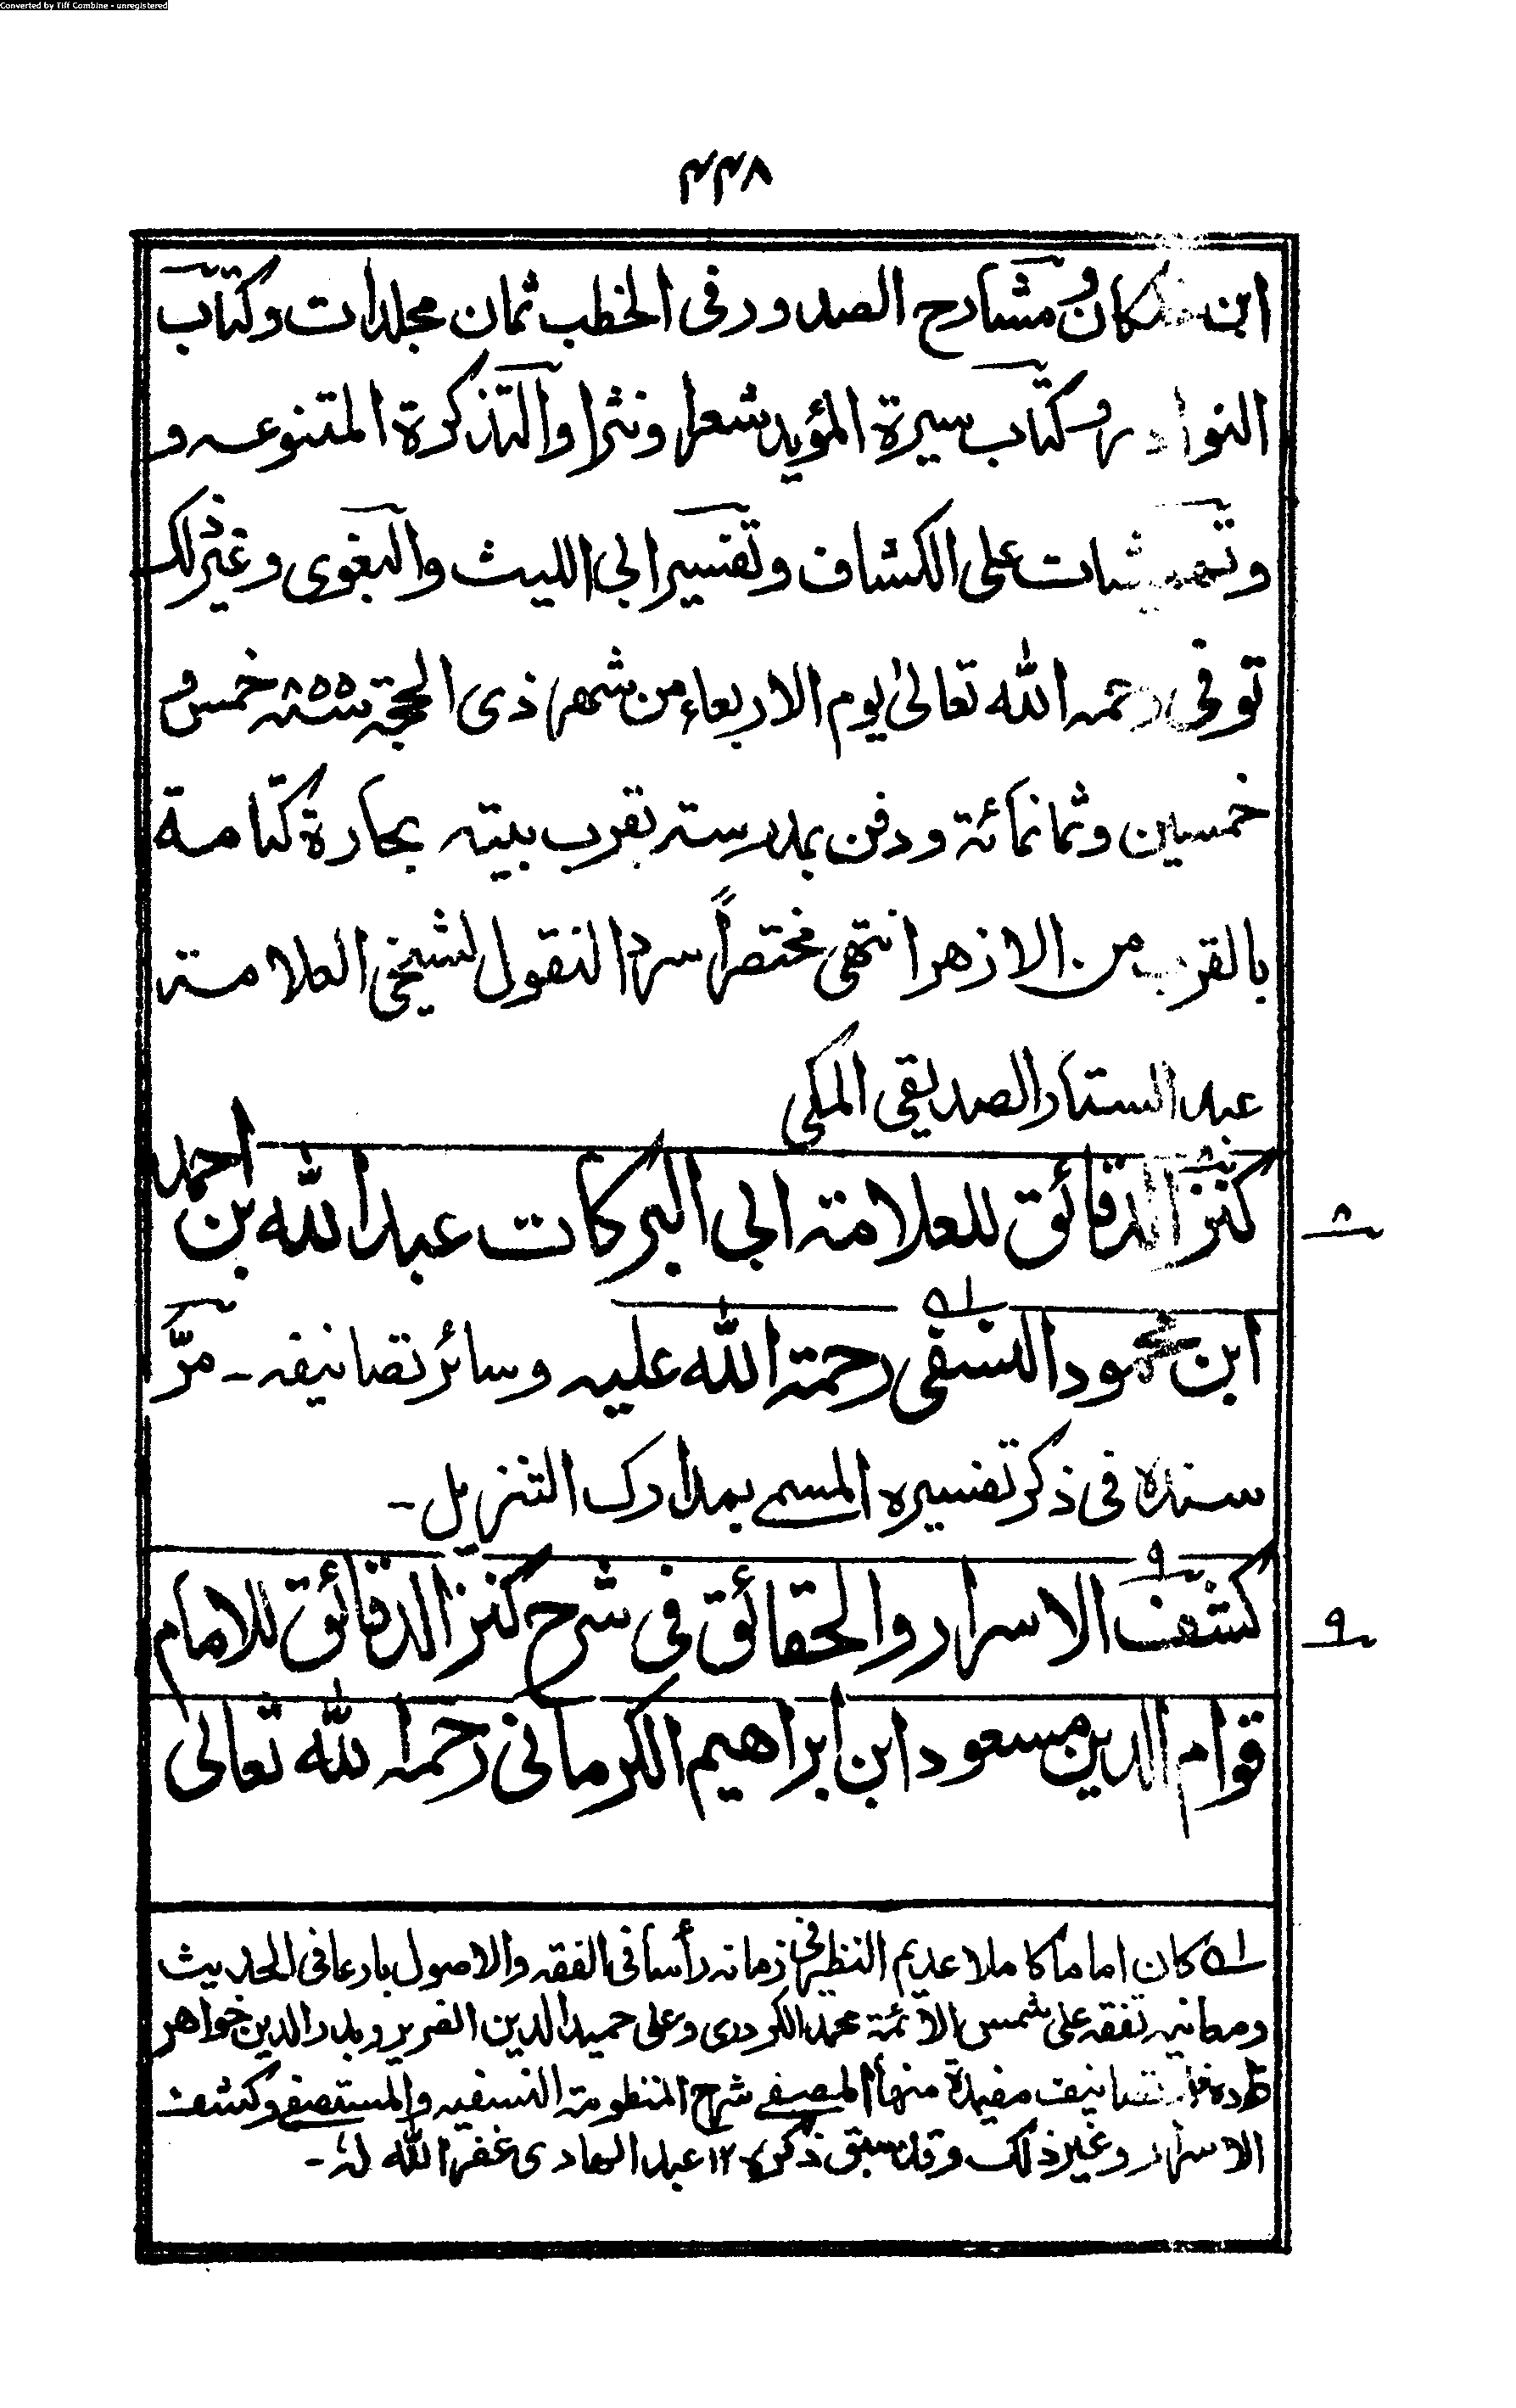 Converted by Tiff Combine - unregistered
۴۴۸
ابن خلكان ومشارح الصدور فى الخطب ثمان مجلدات وكتاب
النوادر وكتاب سيرة المؤيد شعرا ونثرا والتذكرة المتنوعه و
وتهميشات على الكشاف وتفسير ابى الليث والبغوى وغير ذلك
توفى رحمه الله تعالى يوم الاربعاء من شهر ذى الحجة سنه ۸۵۵ خمس و
خمسين وثمانمائة ودفن بمدرسته بقرب بيته بحارة كتامة
بالقرب من الازهر انتهى مختصراً سرد النقول لشيخى العلامة
عبد الستار الصديقى المكى
۸
كنز الدقائق للعلامة ابى البركات عبد الله بن احمد
ابن محمود النسفى لـه رحمة الله عليه وسائر تصانيفه ـ مرَّ
سنده فى ذكر تفسيره المسمى بمدارك التنزيل ـ
۹
كشف الاسرار والحقائق فى شرح كنز الدقائق للامام
قوام الدين مسعود ابن ابراهيم الكرمانى رحمه الله تعالى
لـه كان اماما كاملا عديم النظير فى زمانه رأسا فى الفقه والاصول بارعا فى الحديث
ومعانيه تفقه على شمس الائمة محمد الكردرى وعلى حميد الدين الضرير وبدر الدين خواهر
زاده تصانيف مفيدة منها المصفى شرح المنظومة النسفيه والمستصفى وكشف
الاسرار وغير ذلك وقد سبق ذكره ۱۲ عبد الهادى غفر الله له ـ